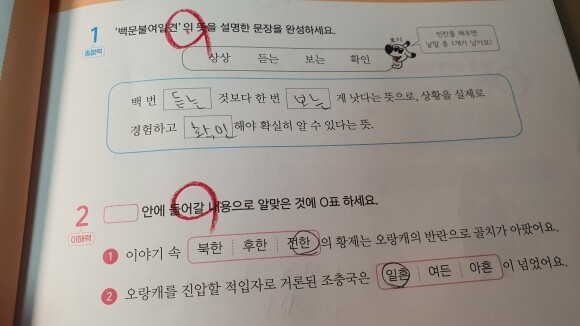 1 '백문불여일견'의 뜻을 설명한 문장을 완성하세요.
표현력
상상 듣는 보는 확인
빈칸을 채우면
낱말 중 1개가 남아요!
백 번 듣는 것보다 한 번 보는 게 낫다는 뜻으로, 상황을 실제로
경험하고 확인해야 확실히 알 수 있다는 뜻.
2 안에 들어갈 내용으로 알맞은 것에 O표 하세요.
이해력
1 이야기 속 북한 후한 전한 의 황제는 오랑캐의 반란으로 골치가 아팠어요.
2 오랑캐를 진압할 적임자로 거론된 조충국은 일흔 여든 아흔 이 넘었어요.